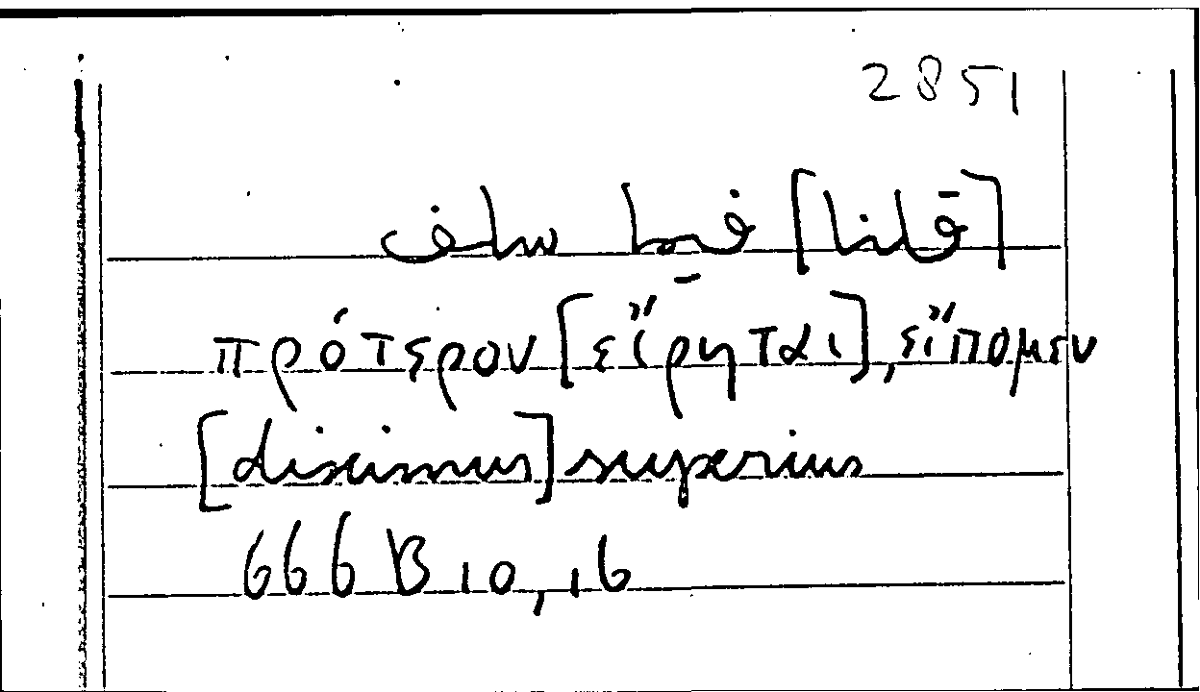 2851
[قلنا] فيما سلف
πρότερον [εἴρηται], εἴπομεν
[diximus] superius
666 B 10, 16